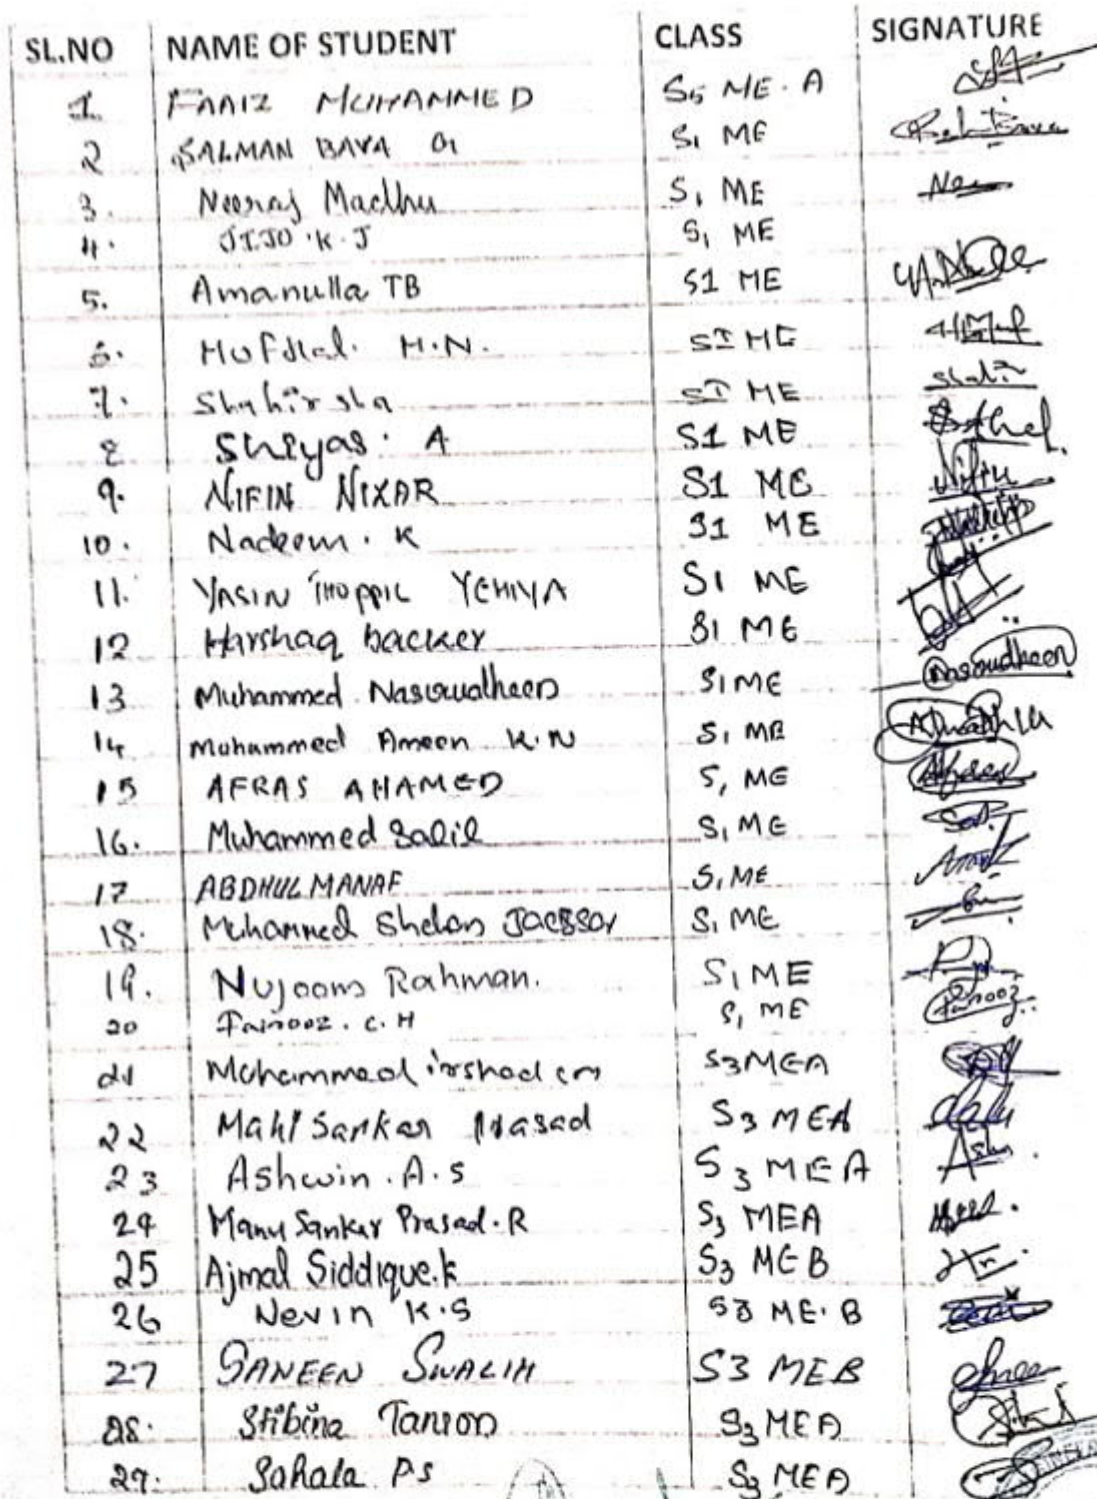 SL.NO NAME OF STUDENT CLASS SIGNATURE
1 FAAIZ MUHAMMED S5 ME. A
2 SALMAN BAVA S1 ME
3. Neeraj Madhu S1 ME
4. JIJO. K. J S1 ME
5. Amanulla TB S1 ME
6. Mufslal. M.N. SI ME
7. Shahirsha SI ME
8 Shiyas. A S1 ME
9. NIFIN NIZAR S1 ME Nifin
10. Nadeem. K S1 ME
11. YASIN THOPPIL YEHIYA S1 ME
12 Harshaq backer S1 ME
13 Muhammed Nasurudheen S1 ME Nasrudheen
14 Muhammed Ameen K.N S1 ME
15 AFRAS AHAMED S1 ME Afras
16. Muhammed Salil S1 ME
17 ABDHUL MANAF S1 ME
18. Muhammed Shelan S1 ME
19. Nujoom Rahman. S1 ME
20 Fairooz. C. H S1 ME Fairooz
21 Mohammed irshad cm S3 MEA
22 Mahi Sankar Prasad S3 MEA
23 Ashwin. A. S S3 MEA Ashw
24 Manu Sankar Prasad. R S3 MEA
25 Ajmal Siddique. k S3 MEB
26 Nevin K.S S3 ME. B
27 SANEEN SWALIH S3 MEB
28. Stibina Tanson S3 MEA
29. Sahala P S S3 MEA